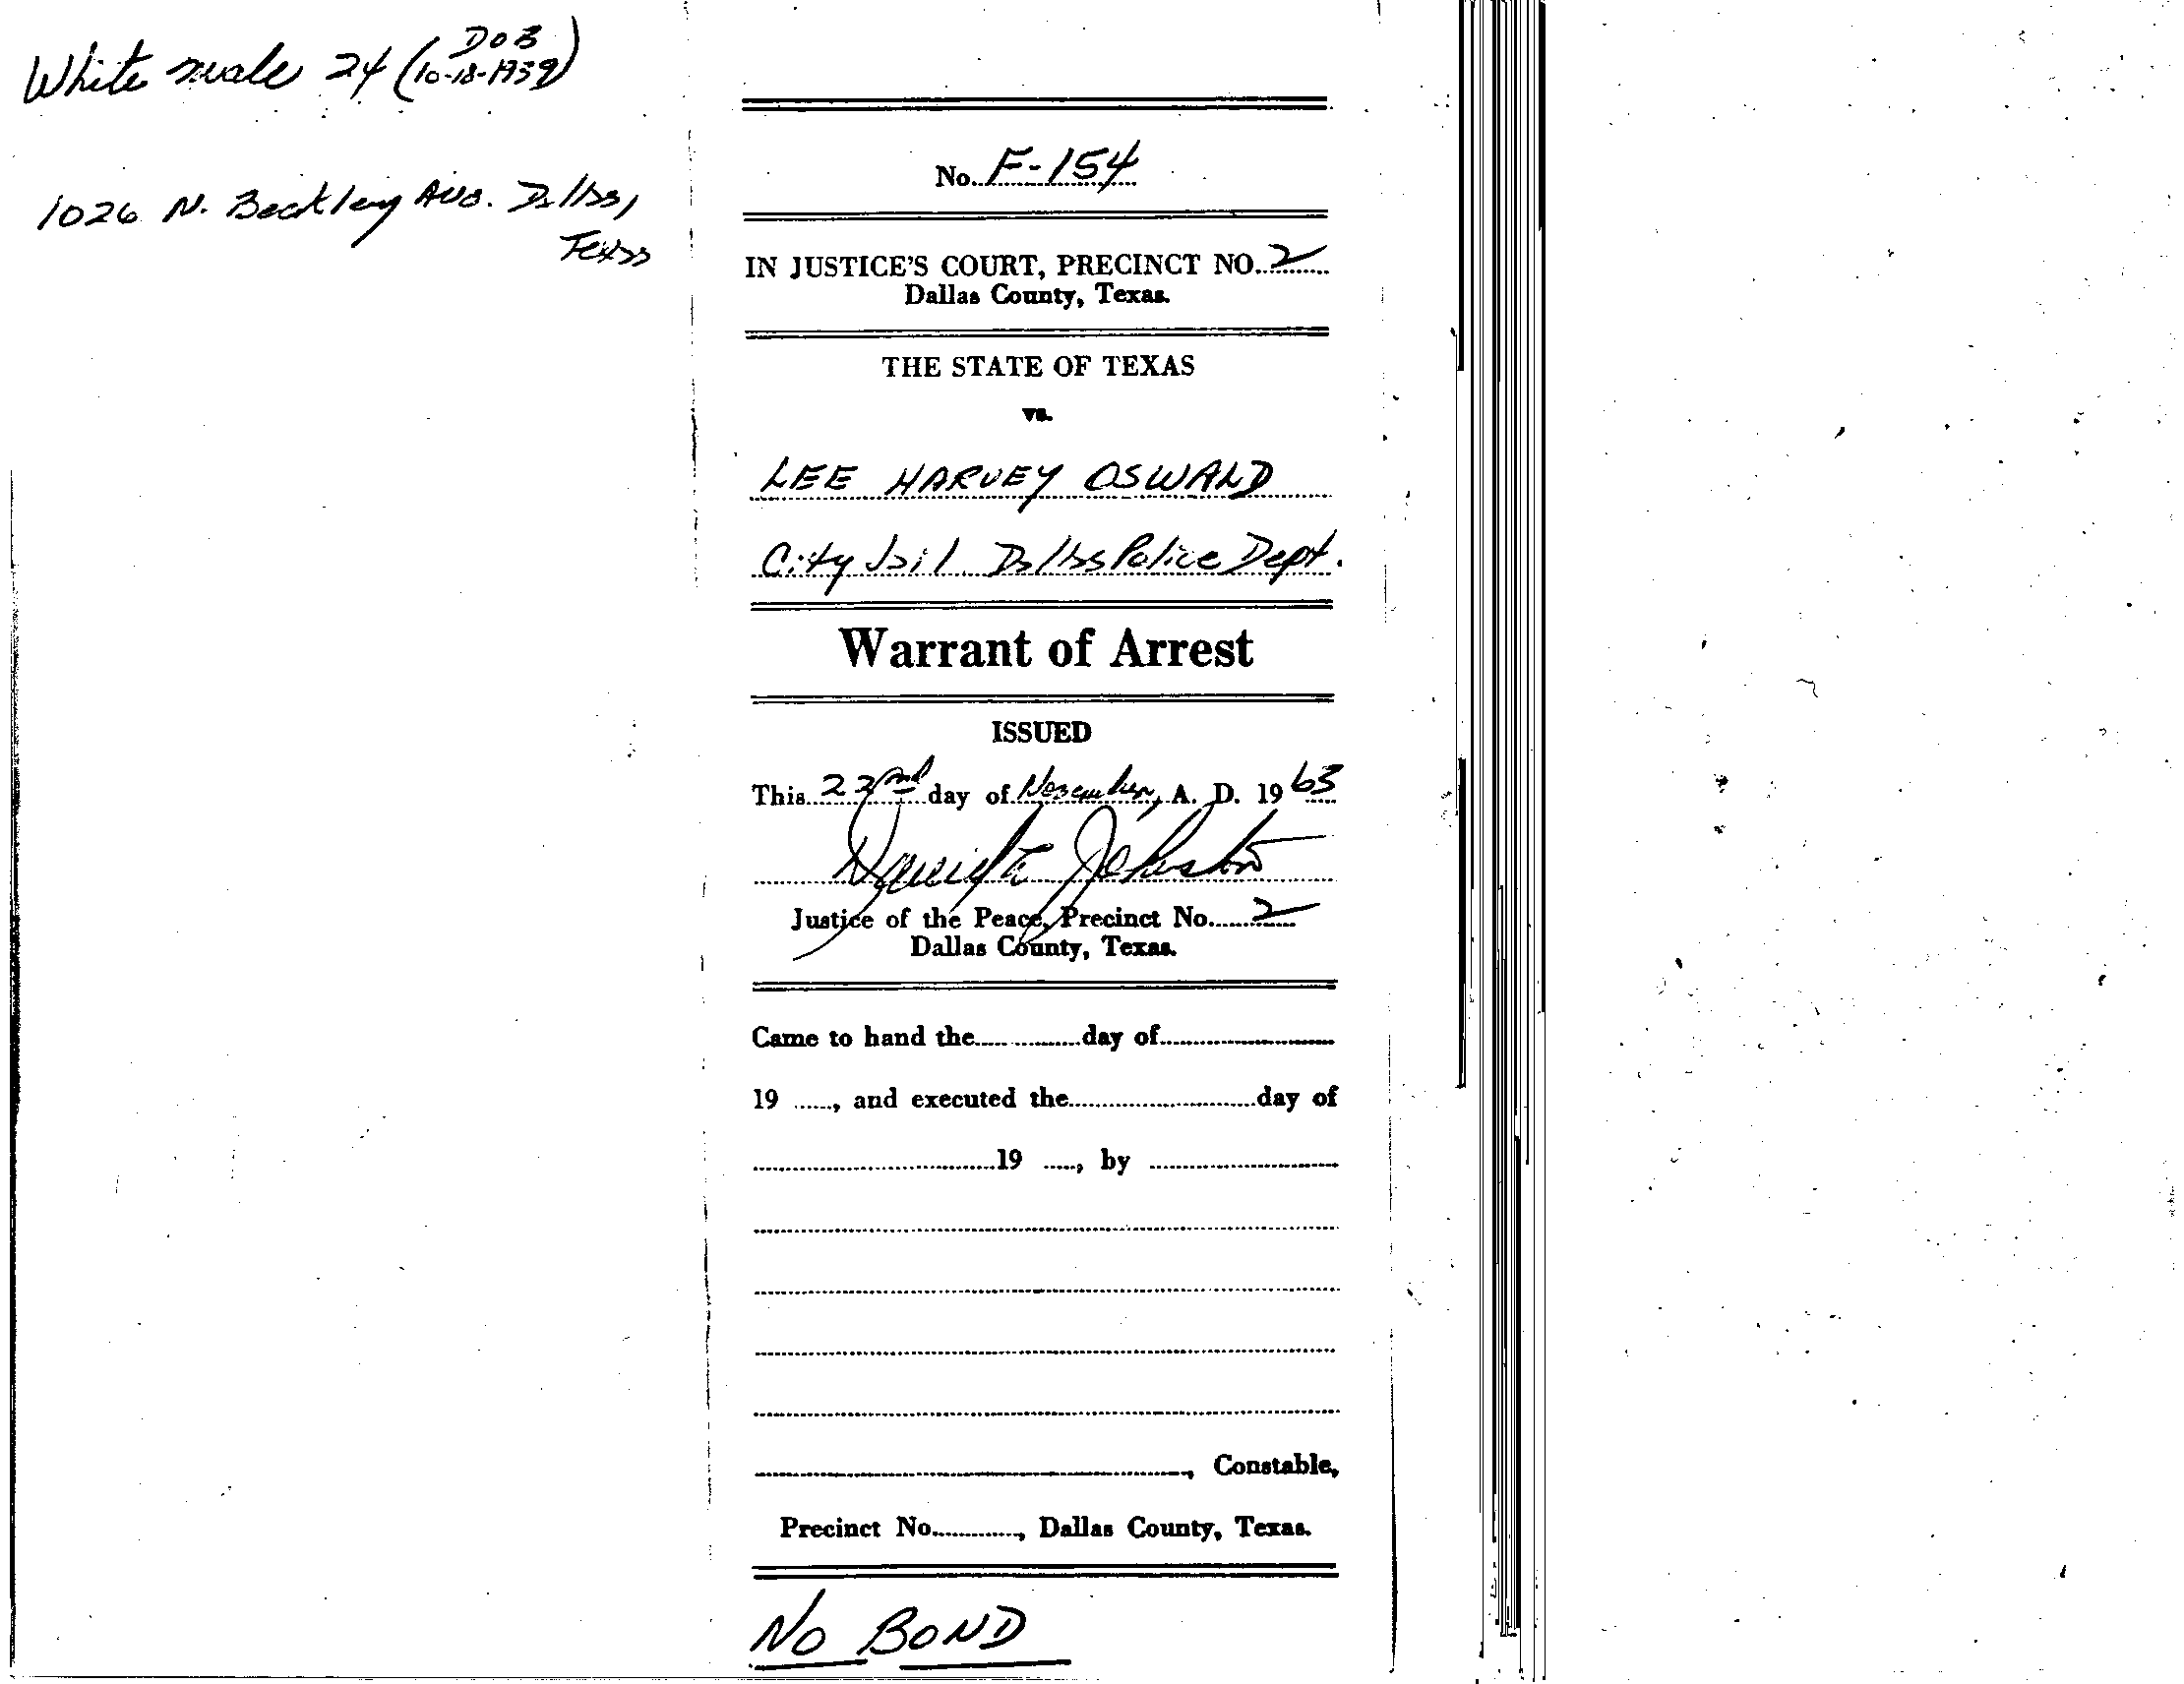 White male 24 (DOB
10-18-1939)
1026 N. Beckley Ave. Dallas,
Texas
No. F-154
IN JUSTICE'S COURT, PRECINCT NO. 2
Dallas County, Texas.
THE STATE OF TEXAS
vs.
LEE HARVEY OSWALD
City Jail Dallas Police Dept.
Warrant of Arrest
ISSUED
This 22nd day of November, A. D. 19 63
David L. Johnston
Justice of the Peace, Precinct No. 2
Dallas County, Texas.
Came to hand the............day of............
19 ......, and executed the............day of
............19 ....., by ............
............, Constable,
Precinct No............., Dallas County, Texas.
NO BOND